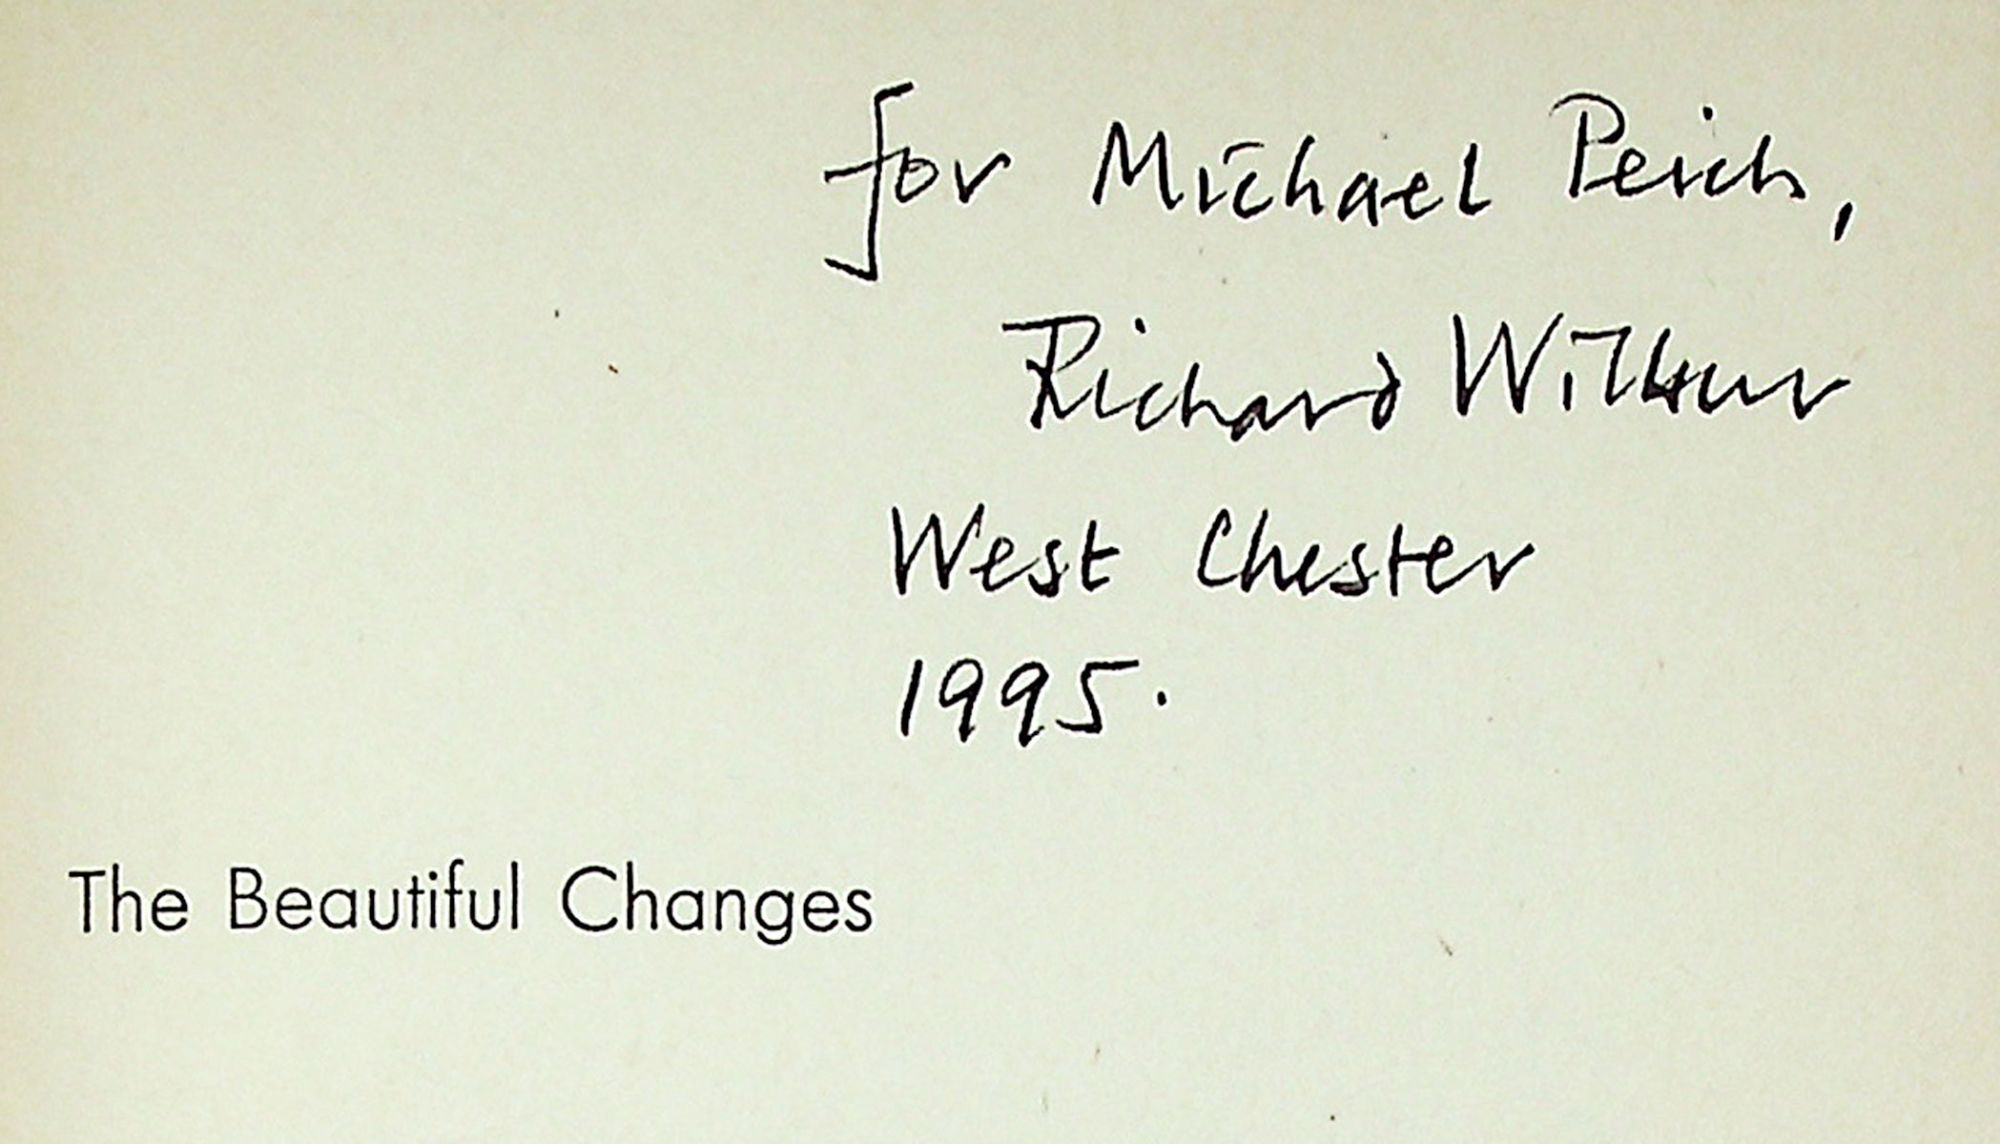 for Michael Peich,
Richard Wilbur
West Chester
1995.
The Beautiful Changes